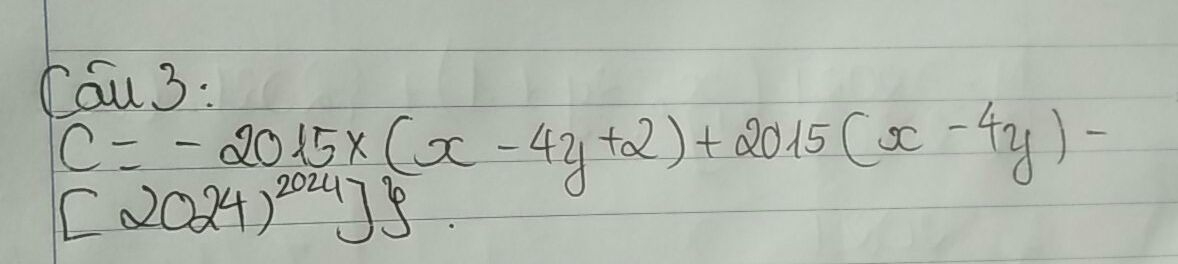 Câu 3:
C = - 2015 × (x - 4y + 2) + 2015 (x - 4y) -
[ 2024)²⁰²⁴]